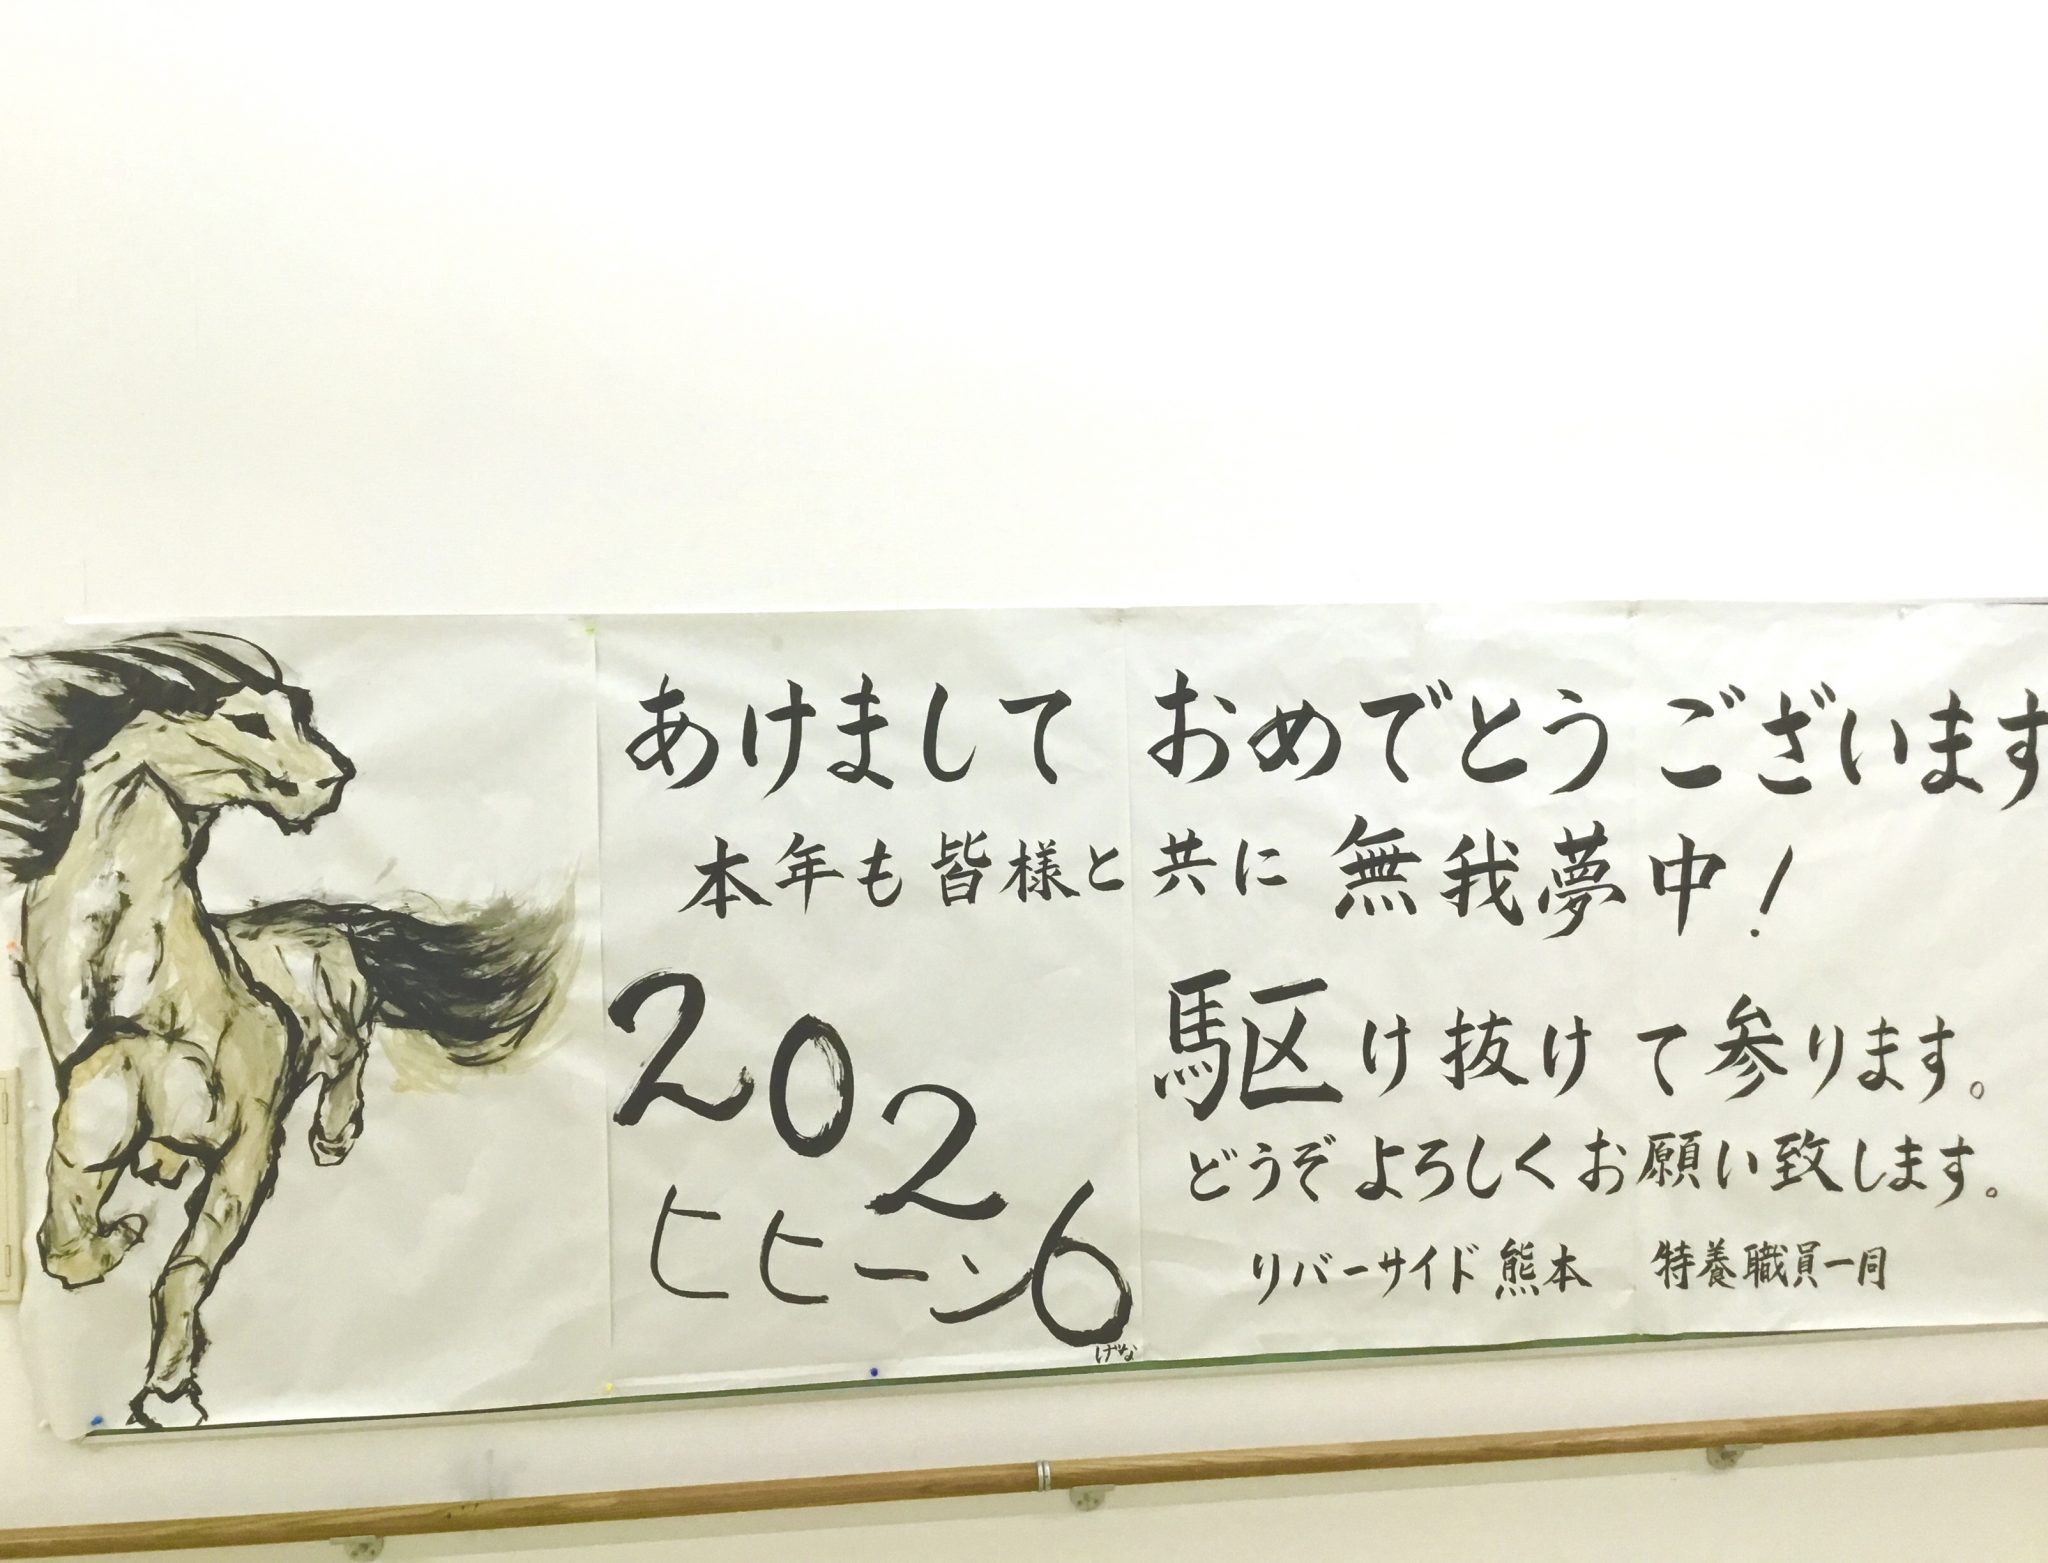 あけまして おめでとう ございます
本年も皆様と共に 無我夢中!
2026
ヒヒーン
げな
駆け抜けて参ります。
どうぞよろしくお願い致します。
リバーサイド熊本 特養職員一同